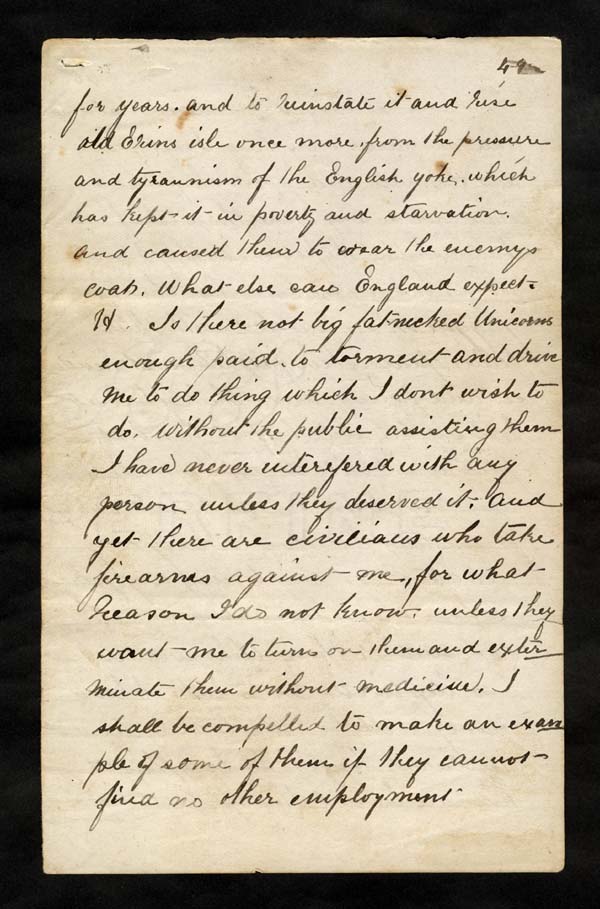 49
for years. and to reinstate it and rise
old Erins isle once more, from the pressure
and tyrannism of the English yoke. which
has kept it in poverty and starvation.
and caused them to wear the enemys
coat. What else can England expect.
Is there not big fat-necked Unicorns
enough paid. to torment and drive
me to do thing which I dont wish to
do. without the public assisting them
I have never interefered with any
person unless they deserved it. and
yet there are civilians who take
firearms against me, for what
reason I do not know. unless they
want me to turn on them and exter
minate them without medicine. I
shall be compelled to make an exam
ple of some of them if they cannot
find no other employment